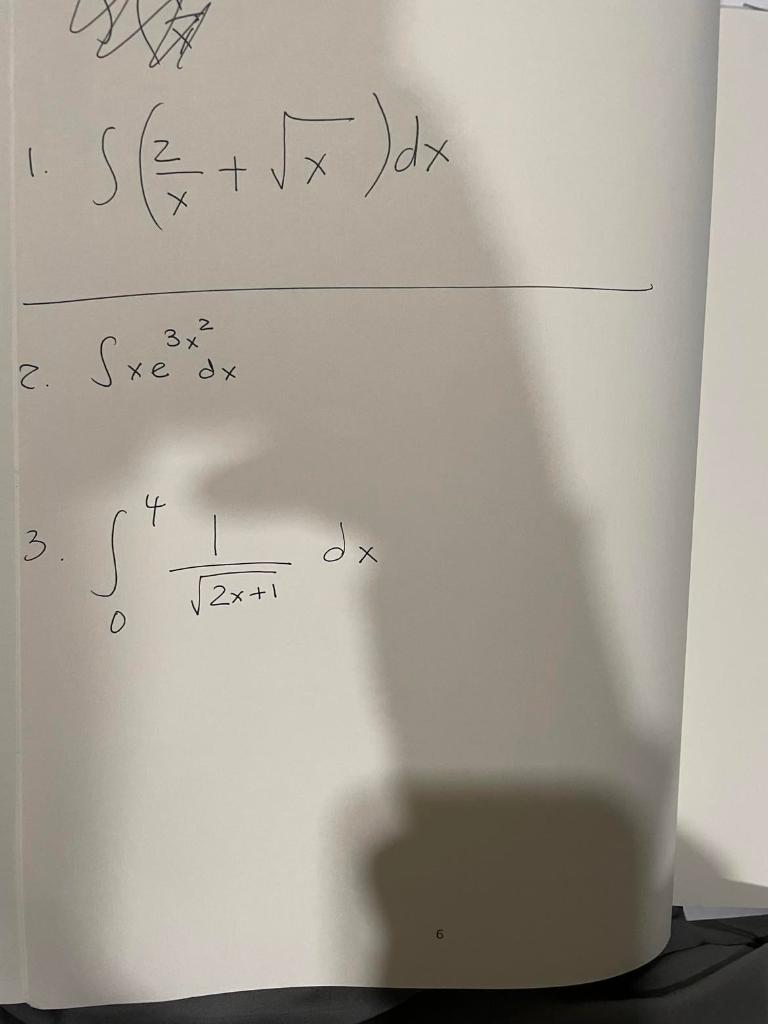 1. ∫(2/x + √x)dx
2. ∫xe^{3x^2}dx
3. ∫_0^4 1/√(2x+1) dx
6